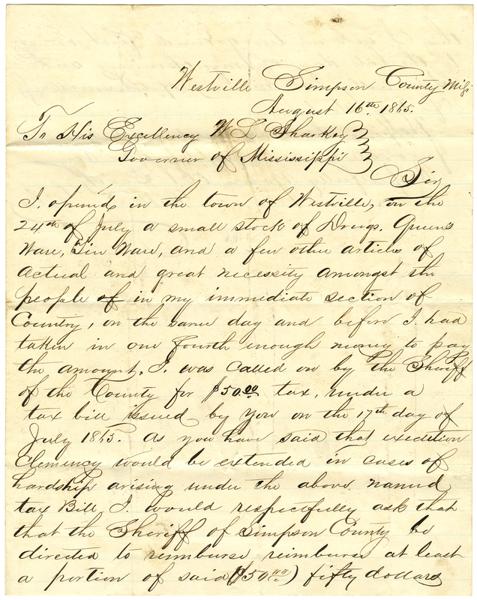 Westville Simpson County Miss
August 16th 1865.
To His Excellency W L Sharkey
Governor of Mississippi
Sir
I opened in the town of Westville, on the
24th of July a small stock of Drugs, Queens
Ware, Tin Ware, and a few other articles of
actual and great necessity amongst the
people of in my immediate section of
Country, on the same day and before I had
taken in one fourth enough money to pay
the amount, I was called on by the Sheriff
of the County for $50.00 tax, under a
tax bill issued by you on the 17th day of
July 1865. As you have said that execution
Clemency would be extended in cases of
hardship arising under the above named
tax Bill I would respectfully ask that
that the Sheriff of Simpson County be
directed to reimburse reimburse at least
a portion of said ($50.00) fifty dollars